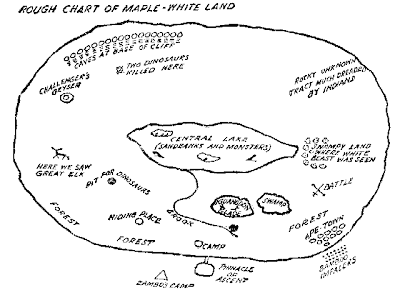 ROUGH CHART OF MAPLE-WHITE LAND
CAVES AT BASE OF CLIFF
TWO DINOSAURS
KILLED HERE
CHALLENGER'S
GEYSER
ROCKY UNKNOWN
TRACT MUCH DREADED
BY INDIANS
CENTRAL LAKE
(SANDBANKS AND MONSTERS)
SWAMPY LAND
WHERE WHITE
BEAST WAS SEEN
HERE WE SAW
GREAT ELK
PIT FOR DINOSAURS
BATTLE
IGUANODON
GLADE
SWAMP
HIDING PLACE
BROOK
FOREST
FOREST
FOREST
APE-TOWN
CAMP
BAMBOO
IMPALERS
PINNACLE
OF
ASCENT
ZAMBO'S CAMP